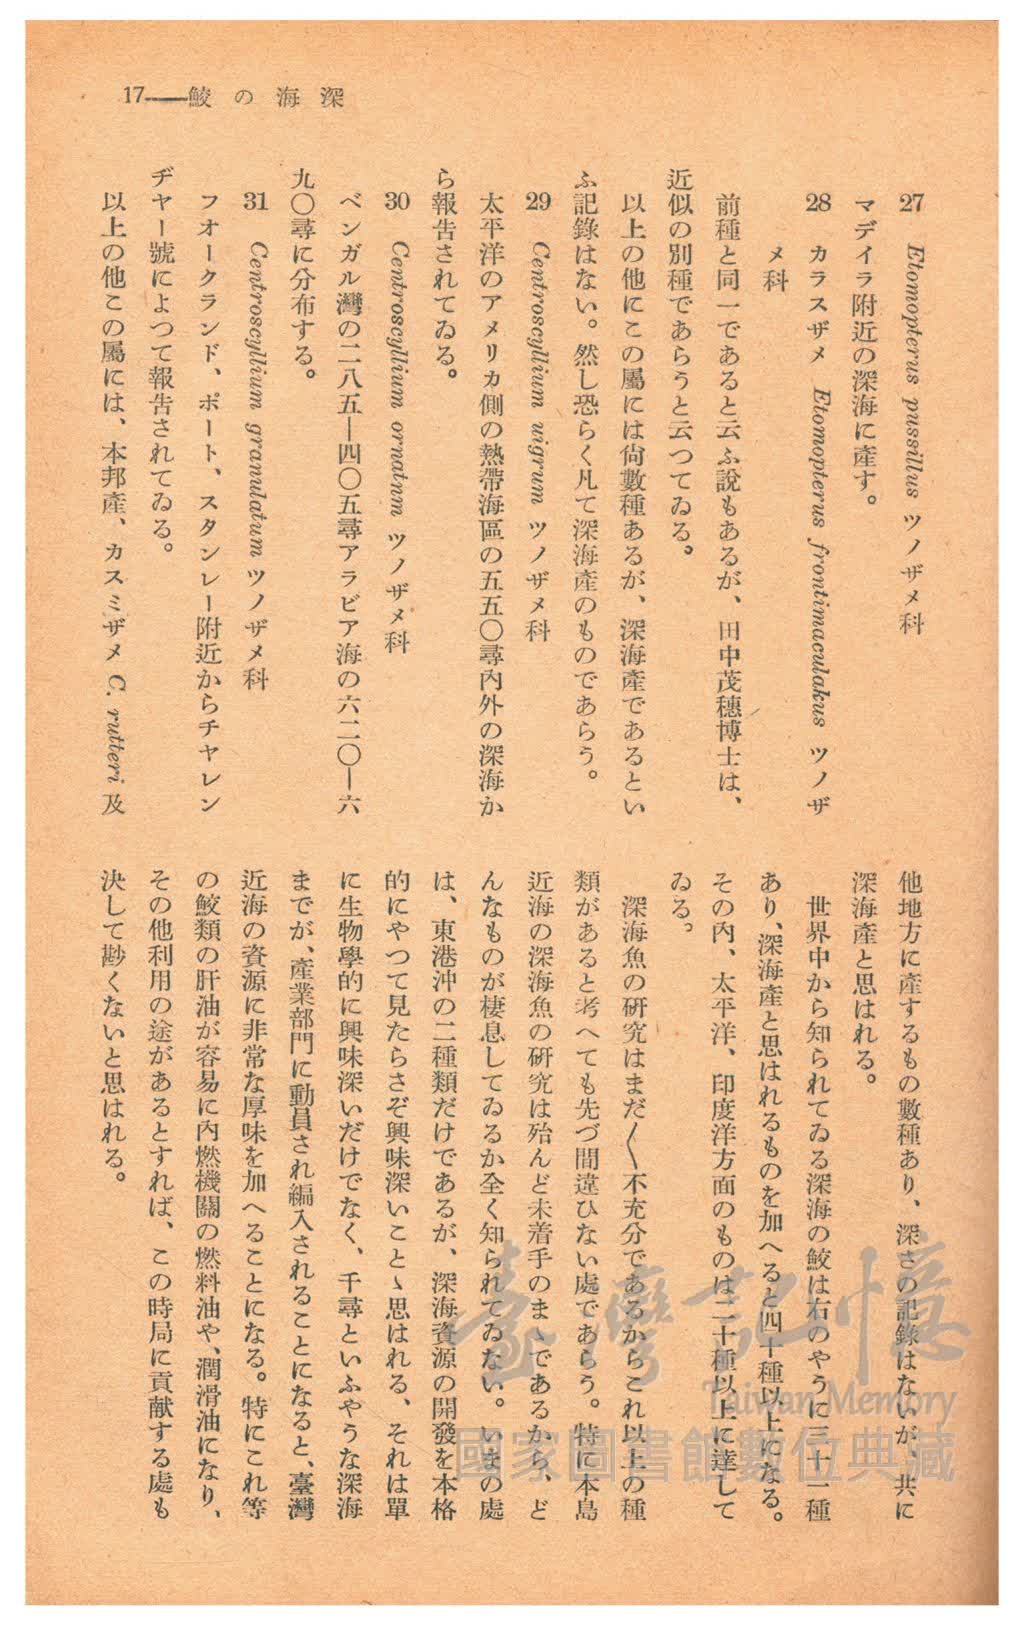 17——鮫の海深
27 Etomopterus pussillus ツノザメ科
マデイラ附近の深海に產す。
28 カラスザメ Etomopterus frontimaculakus ツノザ
メ科
前種と同一であると云ふ說もあるが、田中茂穗博士は、
近似の別種であらうと云つてゐる。
以上の他にこの屬には尙數種あるが、深海產であるとい
ふ記錄はない。然し恐らく凡て深海產のものであらう。
29 Centroscyllium uigrum ツノザメ科
太平洋のアメリカ側の熱帶海區の五五〇尋內外の深海か
ら報告されてゐる。
30 Centroscyllium ornatnm ツノザメ科
ベンガル灣の二八五—四〇五尋アラビア海の六二〇—六
九〇尋に分布する。
31 Centroscyllium granulatum ツノザメ科
フオークランド、ポート、スタンレー附近からチヤレン
ヂヤー號によつて報告されてゐる。
以上の他この屬には、本邦產、カスミザメ C. rutteri 及
他地方に產するもの數種あり、深さの記錄はないが、共に
深海產と思はれる。
世界中から知られてゐる深海の鮫は右のやうに三十一種
あり、深海產と思はれるものを加へると四十種以上になる。
その內、太平洋、印度洋方面のものは二十種以上に達して
ゐる。
深海魚の硏究はまだ〱不充分であるからこれ以上の種
類があると考へても先づ間違ひない處であらう。特に本島
近海の深海魚の硏究は殆んど未着手のまゝであるから、ど
んなものが棲息してゐるか全く知られてゐない。いまの處
は、東港沖の二種類だけであるが、深海資源の開發を本格
的にやつて見たらさぞ興味深いことゝ思はれる、それは單
に生物學的に興味深いだけでなく、千尋といふやうな深海
までが、產業部門に動員され編入されることになると、臺灣
近海の資源に非常な厚味を加へることになる。特にこれ等
の鮫類の肝油が容易に內燃機關の燃料油や、潤滑油になり、
その他利用の途があるとすれば、この時局に貢献する處も
決して尠くないと思はれる。
臺灣記憶
Taiwan Memory
國家圖書館數位典藏